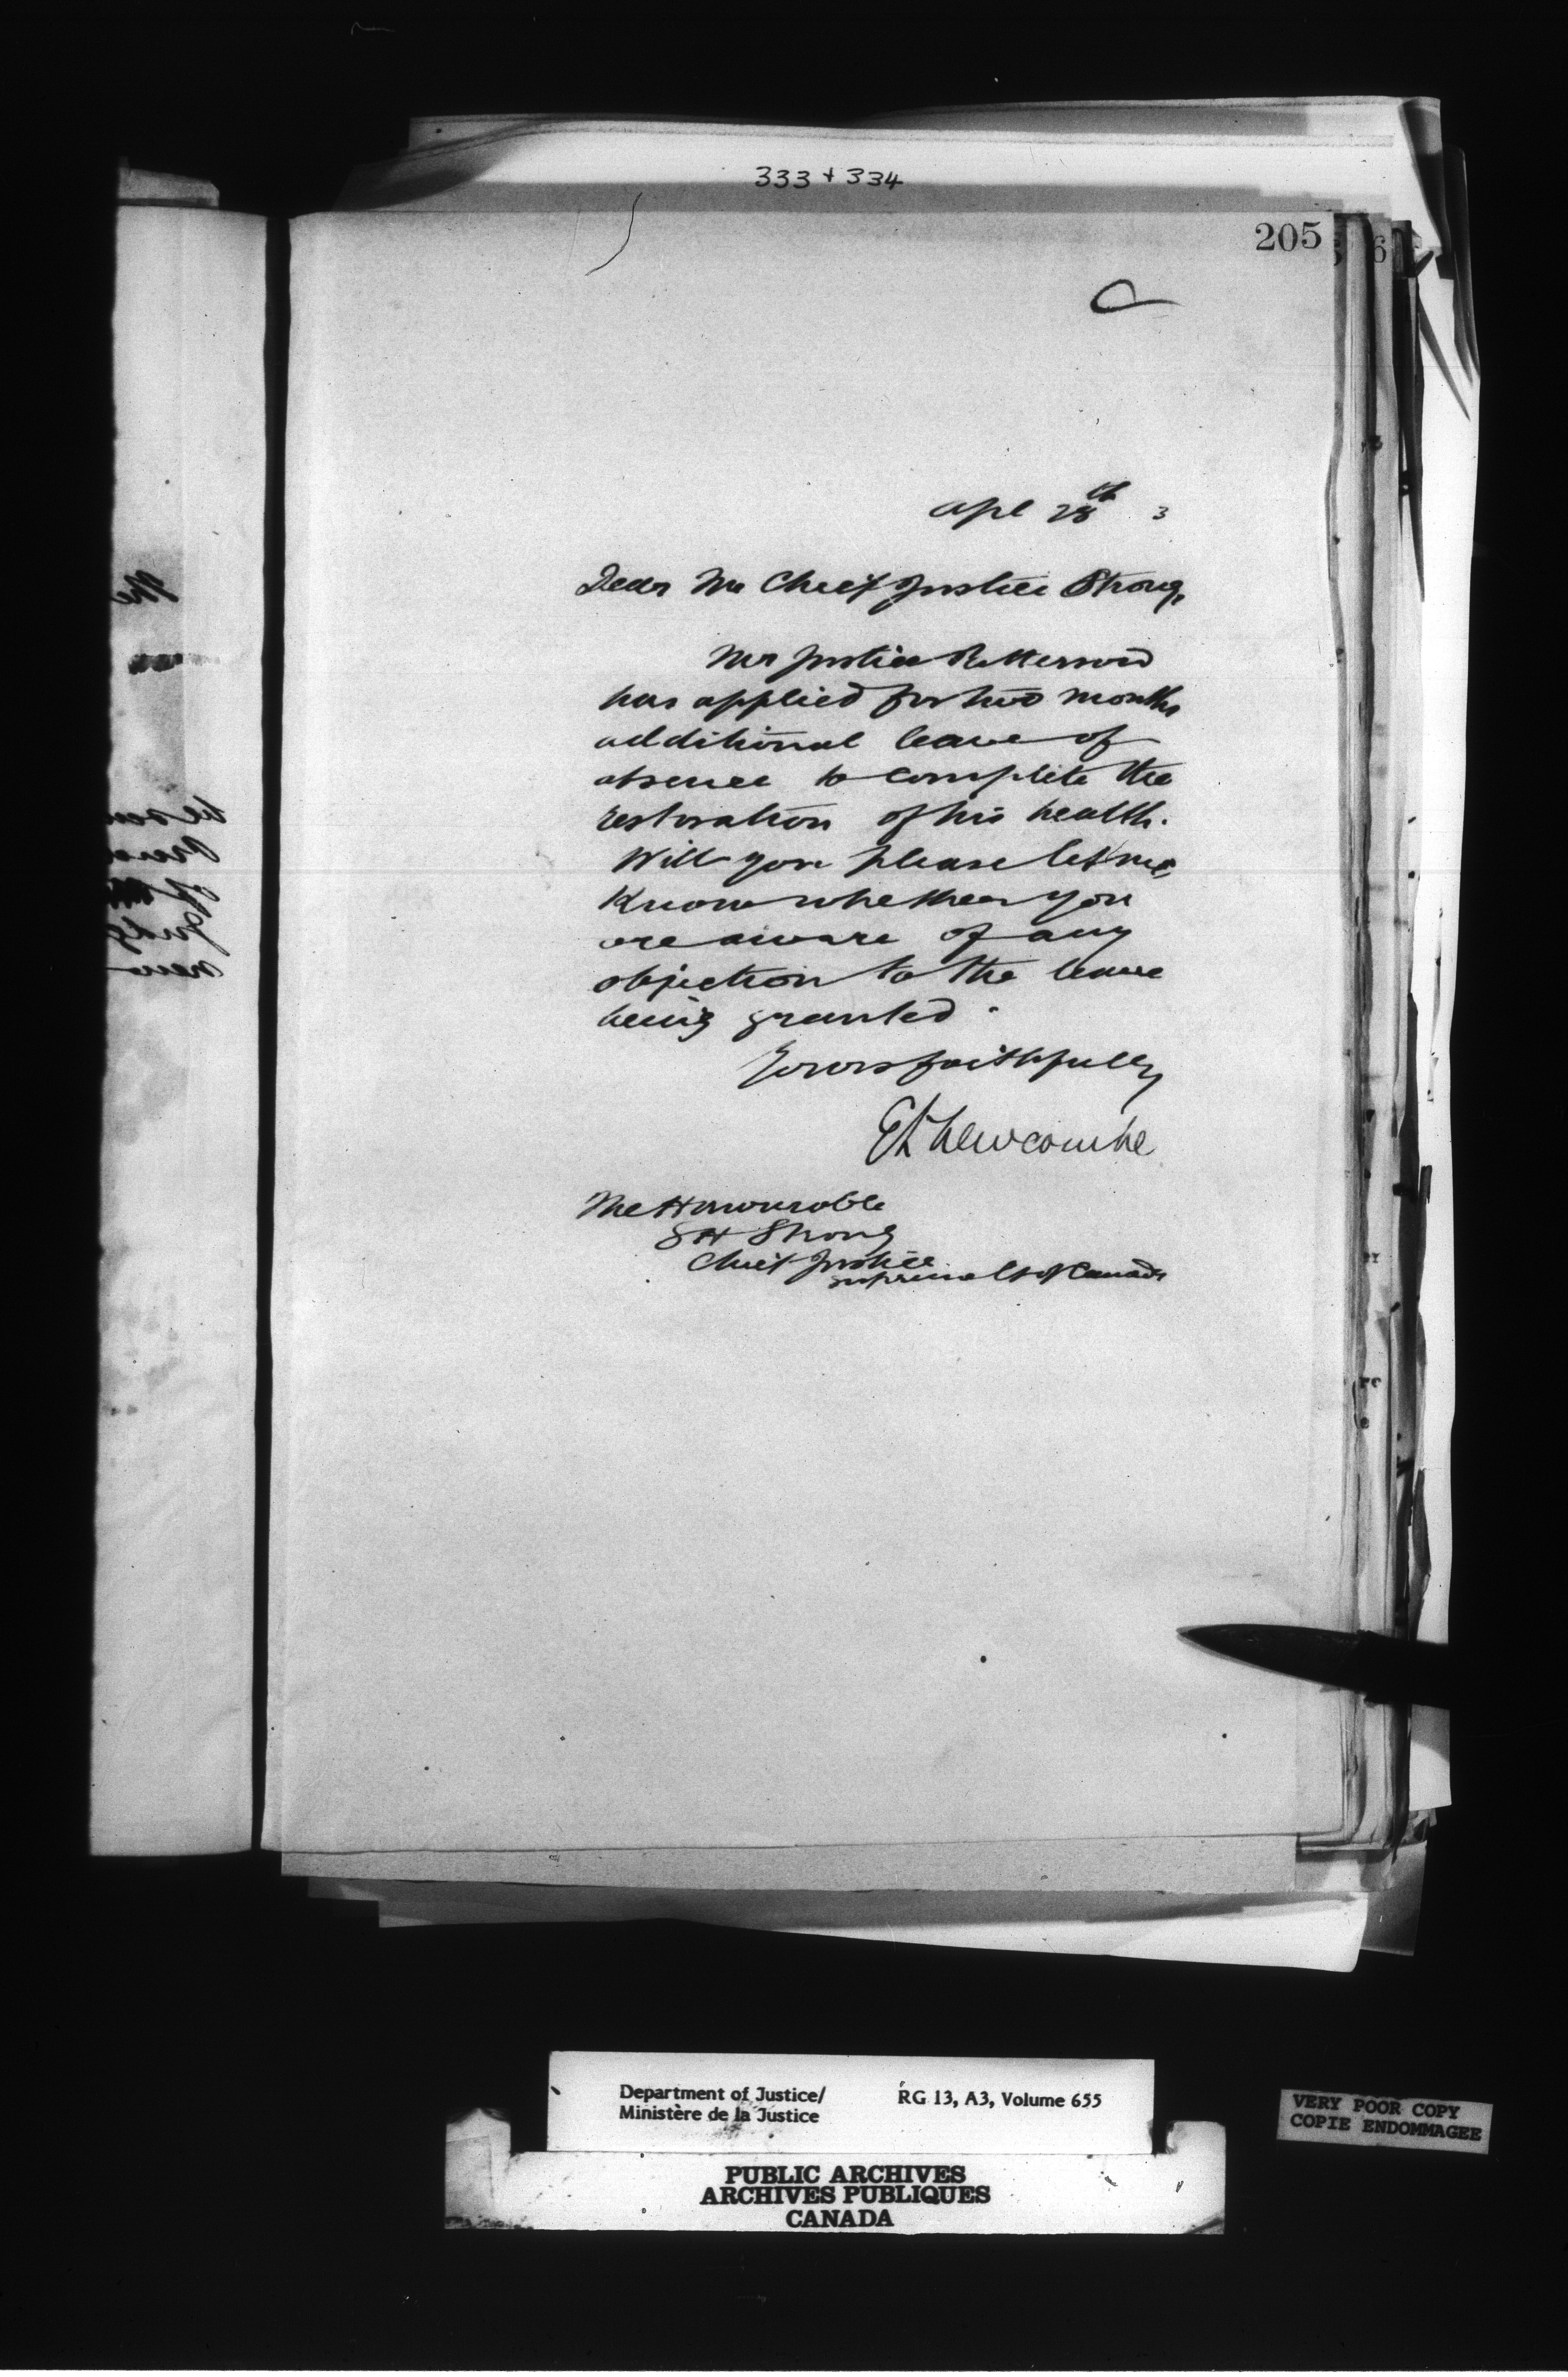 333 + 334
205
Apl 28th 3
Dear Mr Chief Justice Strong,
Mr Justice Patterson
has applied for two months
additional leave of
absence to complete the
restoration of his health.
Will you please let me
know whether you
are aware of any
objection to the leave
being granted.
Yours faithfully
EL Newcombe
The Honourable
S H Strong
Chief Justice
Supreme Ct of Canada
Department of Justice/
Ministère de la Justice
RG 13, A3, Volume 655
VERY POOR COPY
COPIE ENDOMMAGEE
PUBLIC ARCHIVES
ARCHIVES PUBLIQUES
CANADA